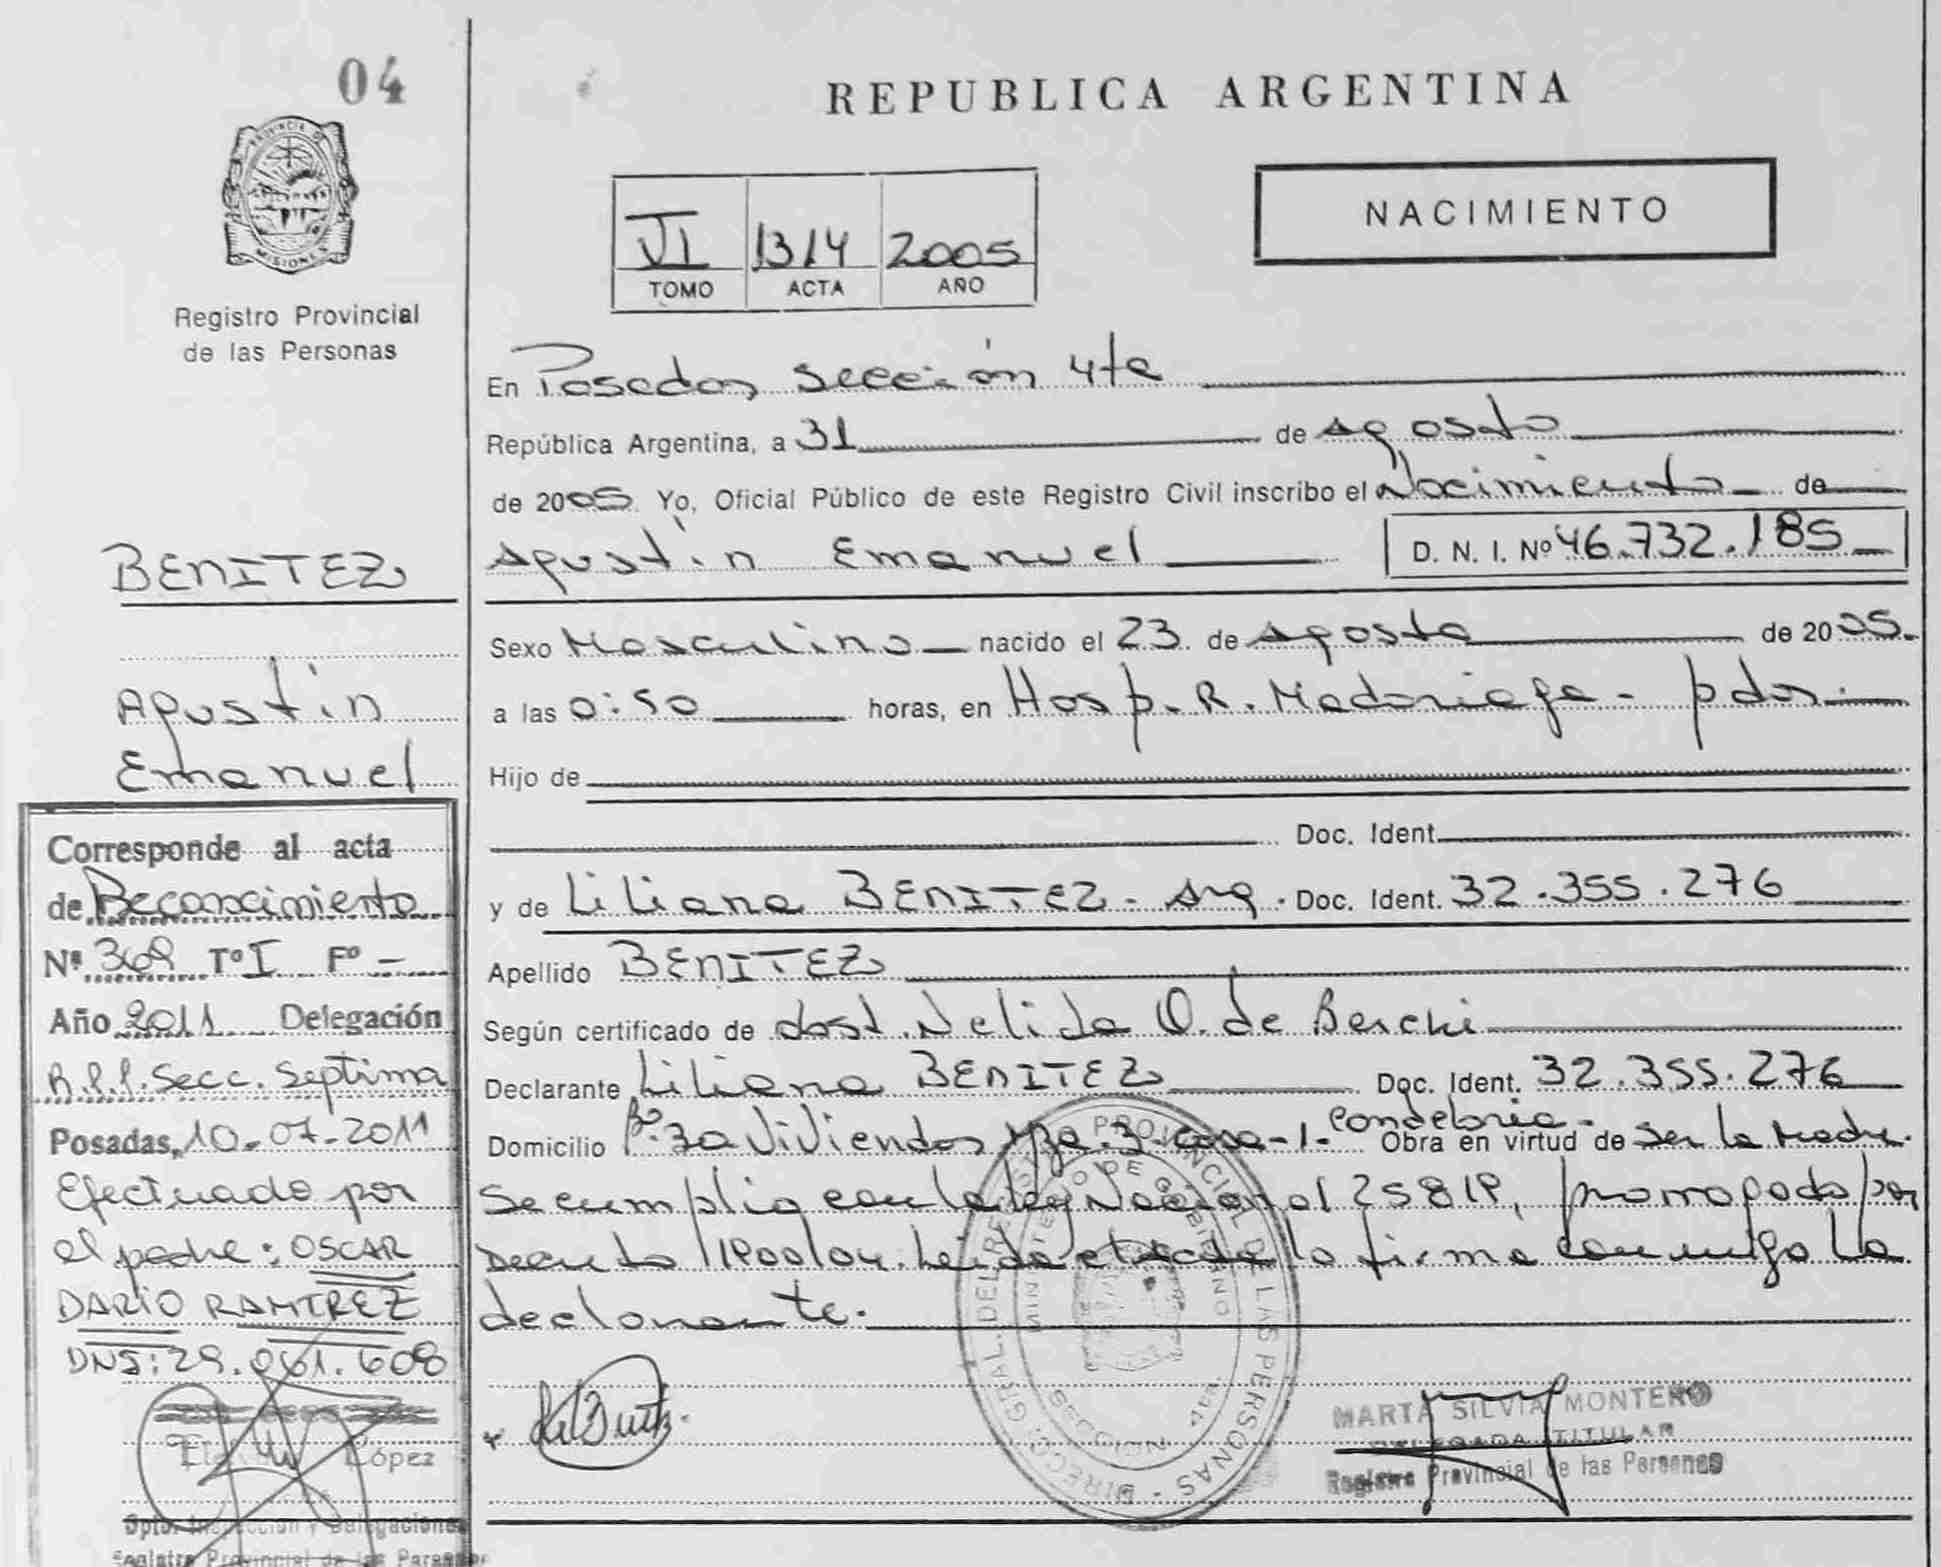 04
PROVINCIA DE
MISIONES
Registro Provincial
de las Personas
REPUBLICA ARGENTINA
VI 1314 2005
TOMO ACTA AÑO
NACIMIENTO
En Posadas, sección 4ta
República Argentina, a 31 de Agosto
de 2005. Yo, Oficial Público de este Registro Civil inscribo el Nacimiento de
Agustín Emanuel D. N. I. Nº 46.732.185
Sexo Masculino nacido el 23 de Agosto de 2005.
a las 0:50 horas, en Hosp. R. Madariaga - pdas.
Hijo de
Doc. Ident.
y de Liliana BENITEZ - Arg. Doc. Ident. 32.355.276
Apellido BENITEZ
Según certificado de obst. Nelida O. de
Declarante Liliana BENITEZ Doc. Ident. 32.355.276
Domicilio Bº. 30 Viviendas Mza. 3 - casa - 1 - Candelaria - Obra en virtud de ser la Madre.
Se cumplio con la ley Nacional 25819, promogado por
Decreto 1900/04. Leida el acta la firma conmigo la
declarante.
BENITEZ
Agustín
Emanuel
Corresponde al acta
de Reconocimiento
Nº 369 Tº I Fº -
Año 2011 Delegación
R.P.P. Secc. Septima
Posadas, 10-07-2011
Efectuado por
el padre: OSCAR
DARIO RAMIREZ
DNI: 29.061.608
López
Dpto. Inspección y Delegaciones
Registro Provincial de las Personas
DIRECC. GRAL. DEL REGISTRO PROVINCIAL DE LAS PERSONAS -
MINISTERIO DE GOBIERNO
MARTA SILVIA MONTERO
DELEGADA TITULAR
Registro Provincial de las Personas